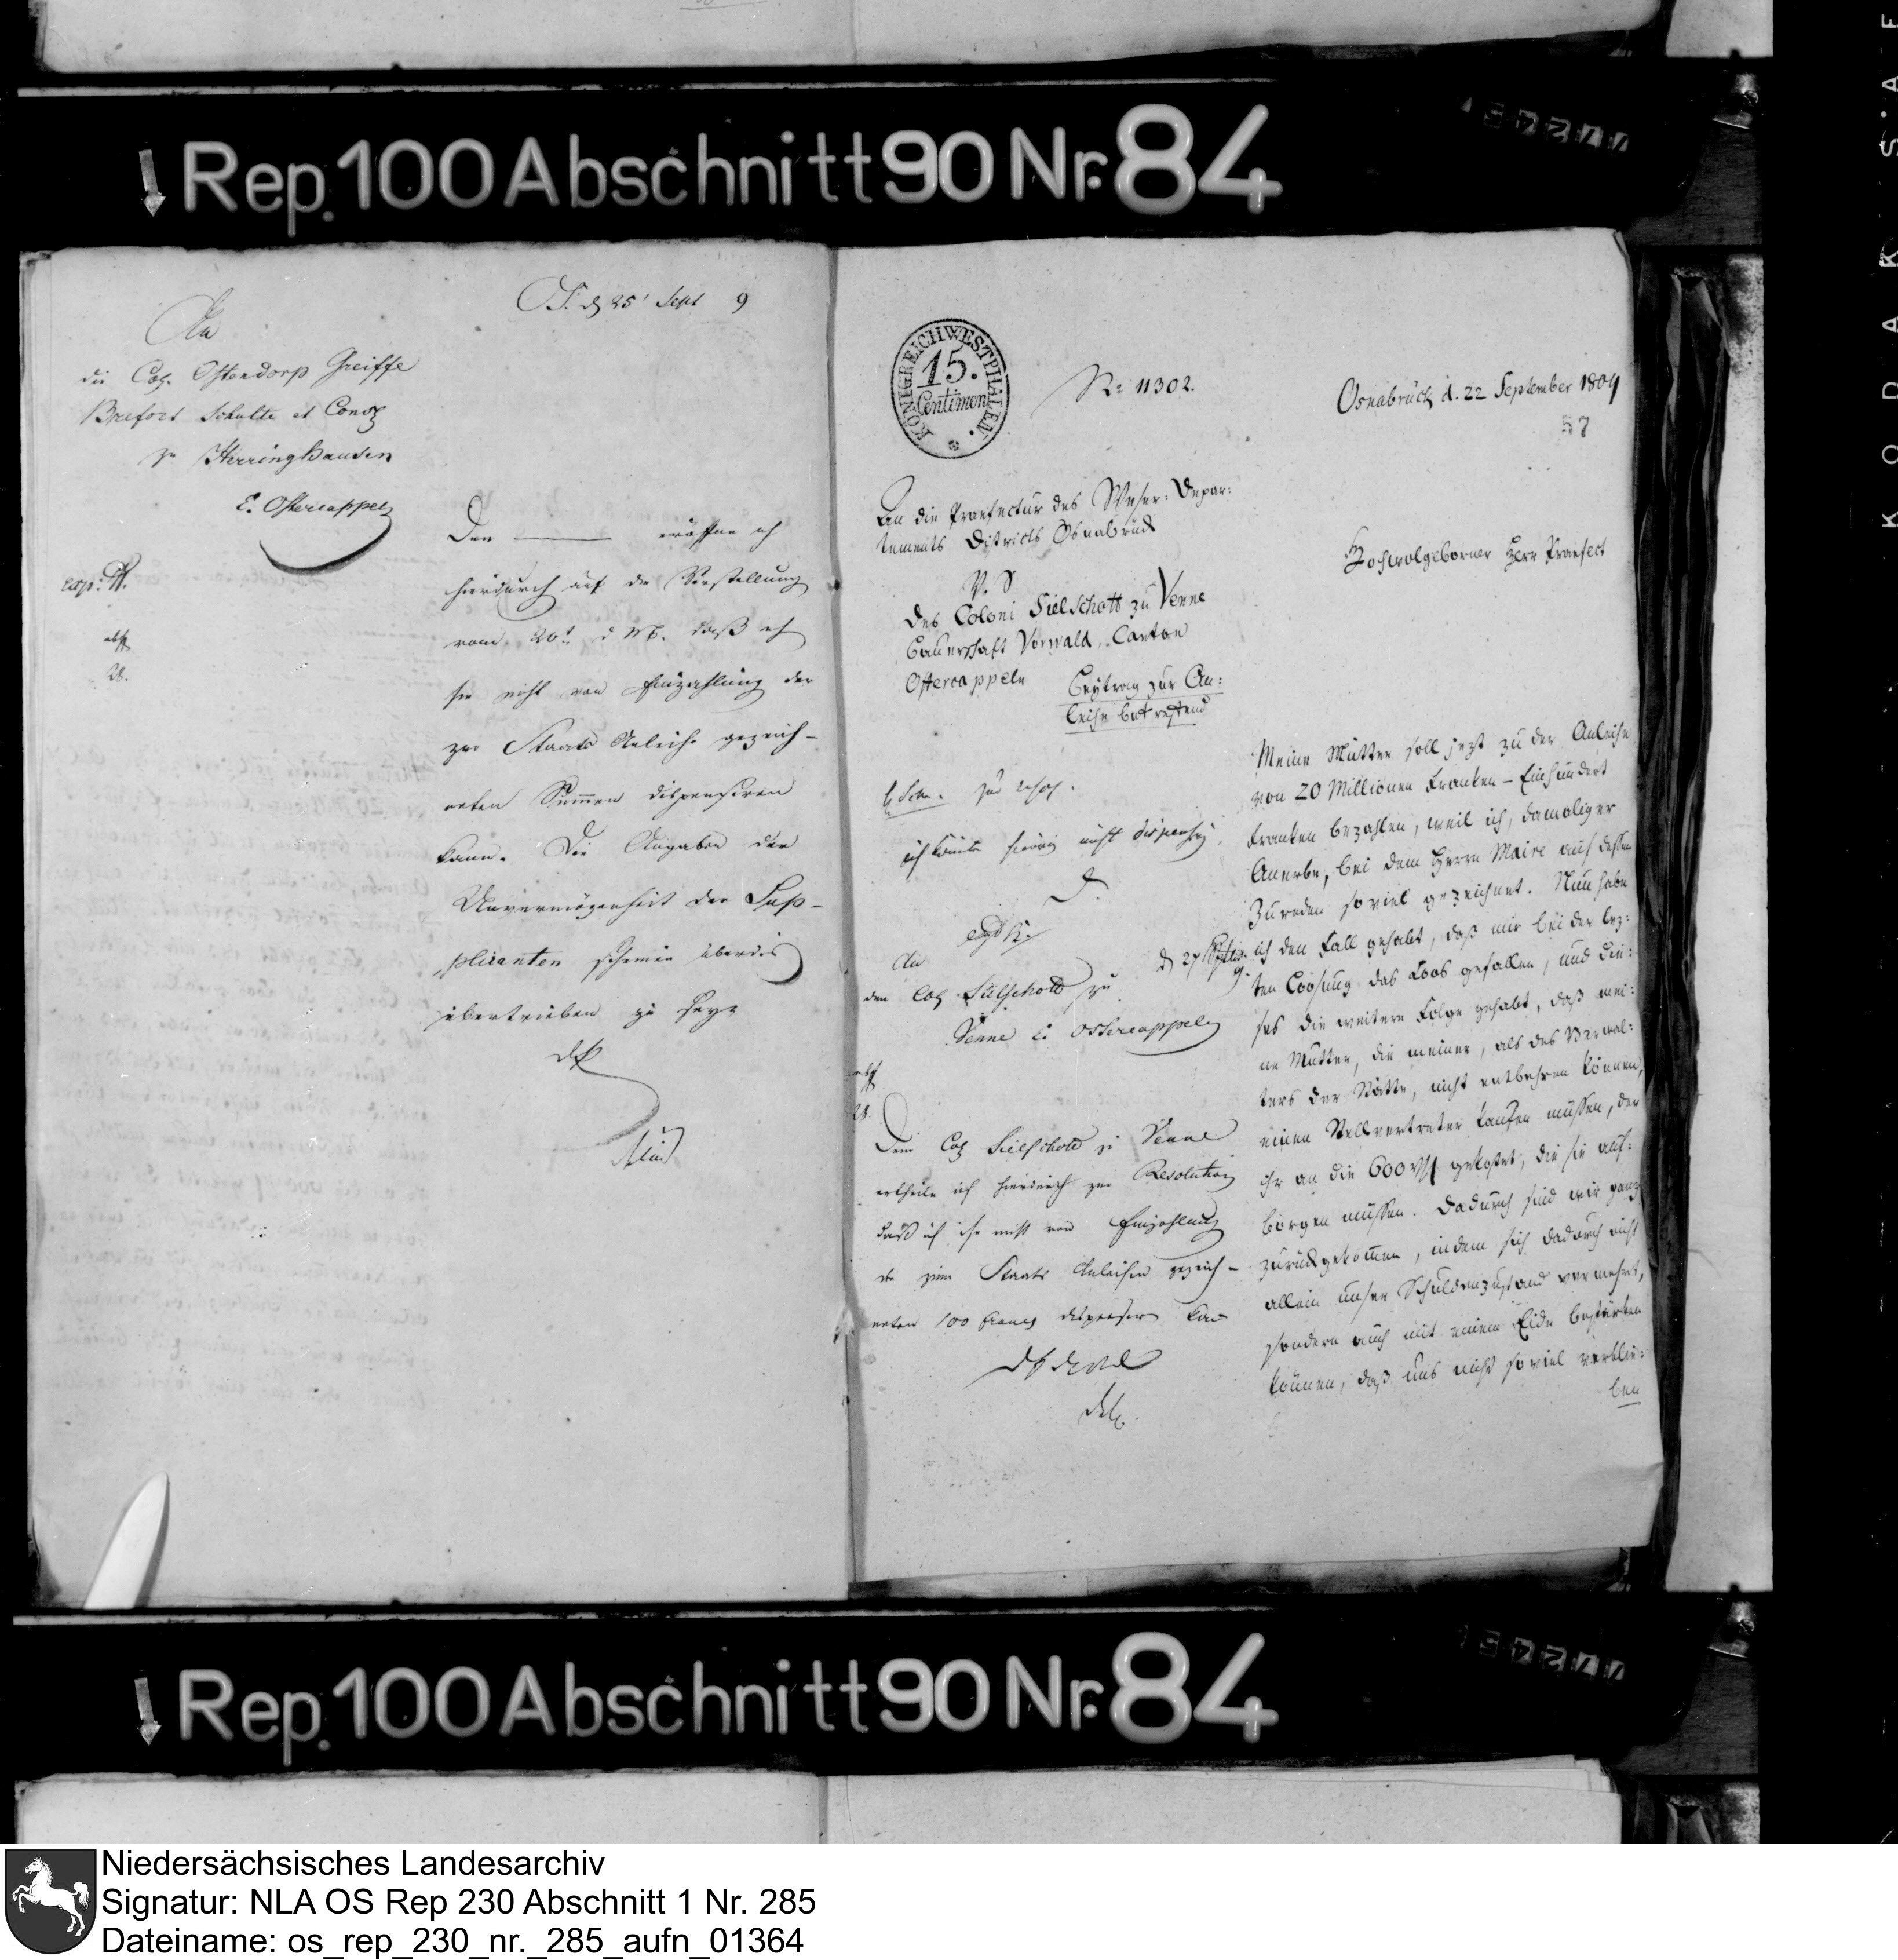 Rep. 100 Abschnitt 90 Nr. 84
Os. d 25t Sept 9
An
die Col. Ostendorp Greiffe
Brefort Schulte et Cons
zu Herringhausen
C. Ostercappeln
Den — eröffne ich
hierdurch auf die Vorstellung
vom 20t d. M. daß ich
sie nicht von Einzahlung der
zur Staats Anleihe gezeich-
neten Summen dispensiren
kann. Die Angaben der
Unvermögenheit der Sup-
plicanten scheinen überdies
übertrieben zu seyn
KÖNIGREICH WESTPHALEN.
15.
Centimen
No 11302.
Osnabrück d. 22 September 1809
57
An die Praefectur des Weser-Depar-
tements Districts Osnabrück
Hochwolgeborner Herr Praefect
V. S
des Coloni Sielschott zu Venne
Bauerschaft Vorwald, Canton
Ostercappeln
Beytrag zur An-
leihe betreffend
ich könnte hievon nicht dispensi
An
den Col Sielschott zu
Venne C. Ostercappeln
d 27 Septbr
9.
Dem Col Sielschott zu Venne
ertheile ich hierdurch zur Resolution
daß ich ihn nicht von Einzahlung
der zum Staats Anleihen gezeich-
neten 100 francs dispensiren kan
Meine Mutter soll jezt zu der Anleihe
von 20 Millionen Franken – Einhundert
Franken bezahlen, weil ich, damaliger
Anerbe, bei dem Herrn Maire auf dessen
Zureden soviel gezeichnet. Nun habe
ich den Fall gehabt, daß mir bei der lez-
ten Loosung das Loos gefallen, und die-
ses die weitere Folge gehabt, daß mei-
ne Mutter, die meiner, als des Verwal-
ters der Stätte, nicht entbehren können,
einen Stellvertreter kaufen müssen, der
ihr an die 600 rthl gekostet, die sie auf-
borgen müssen. Dadurch sind wir ganz
zurückgekommen, indem sich dadurch nicht
allein unser Schuldenzustand vermehrt,
sondern auch mit einem Eide bestärken
können, daß uns nicht soviel verblie-
ben
Rep. 100 Abschnitt 90 Nr. 84
KODAK SAF
Niedersächsisches Landesarchiv
Signatur: NLA OS Rep 230 Abschnitt 1 Nr. 285
Dateiname: os_rep_230_nr._285_aufn_01364